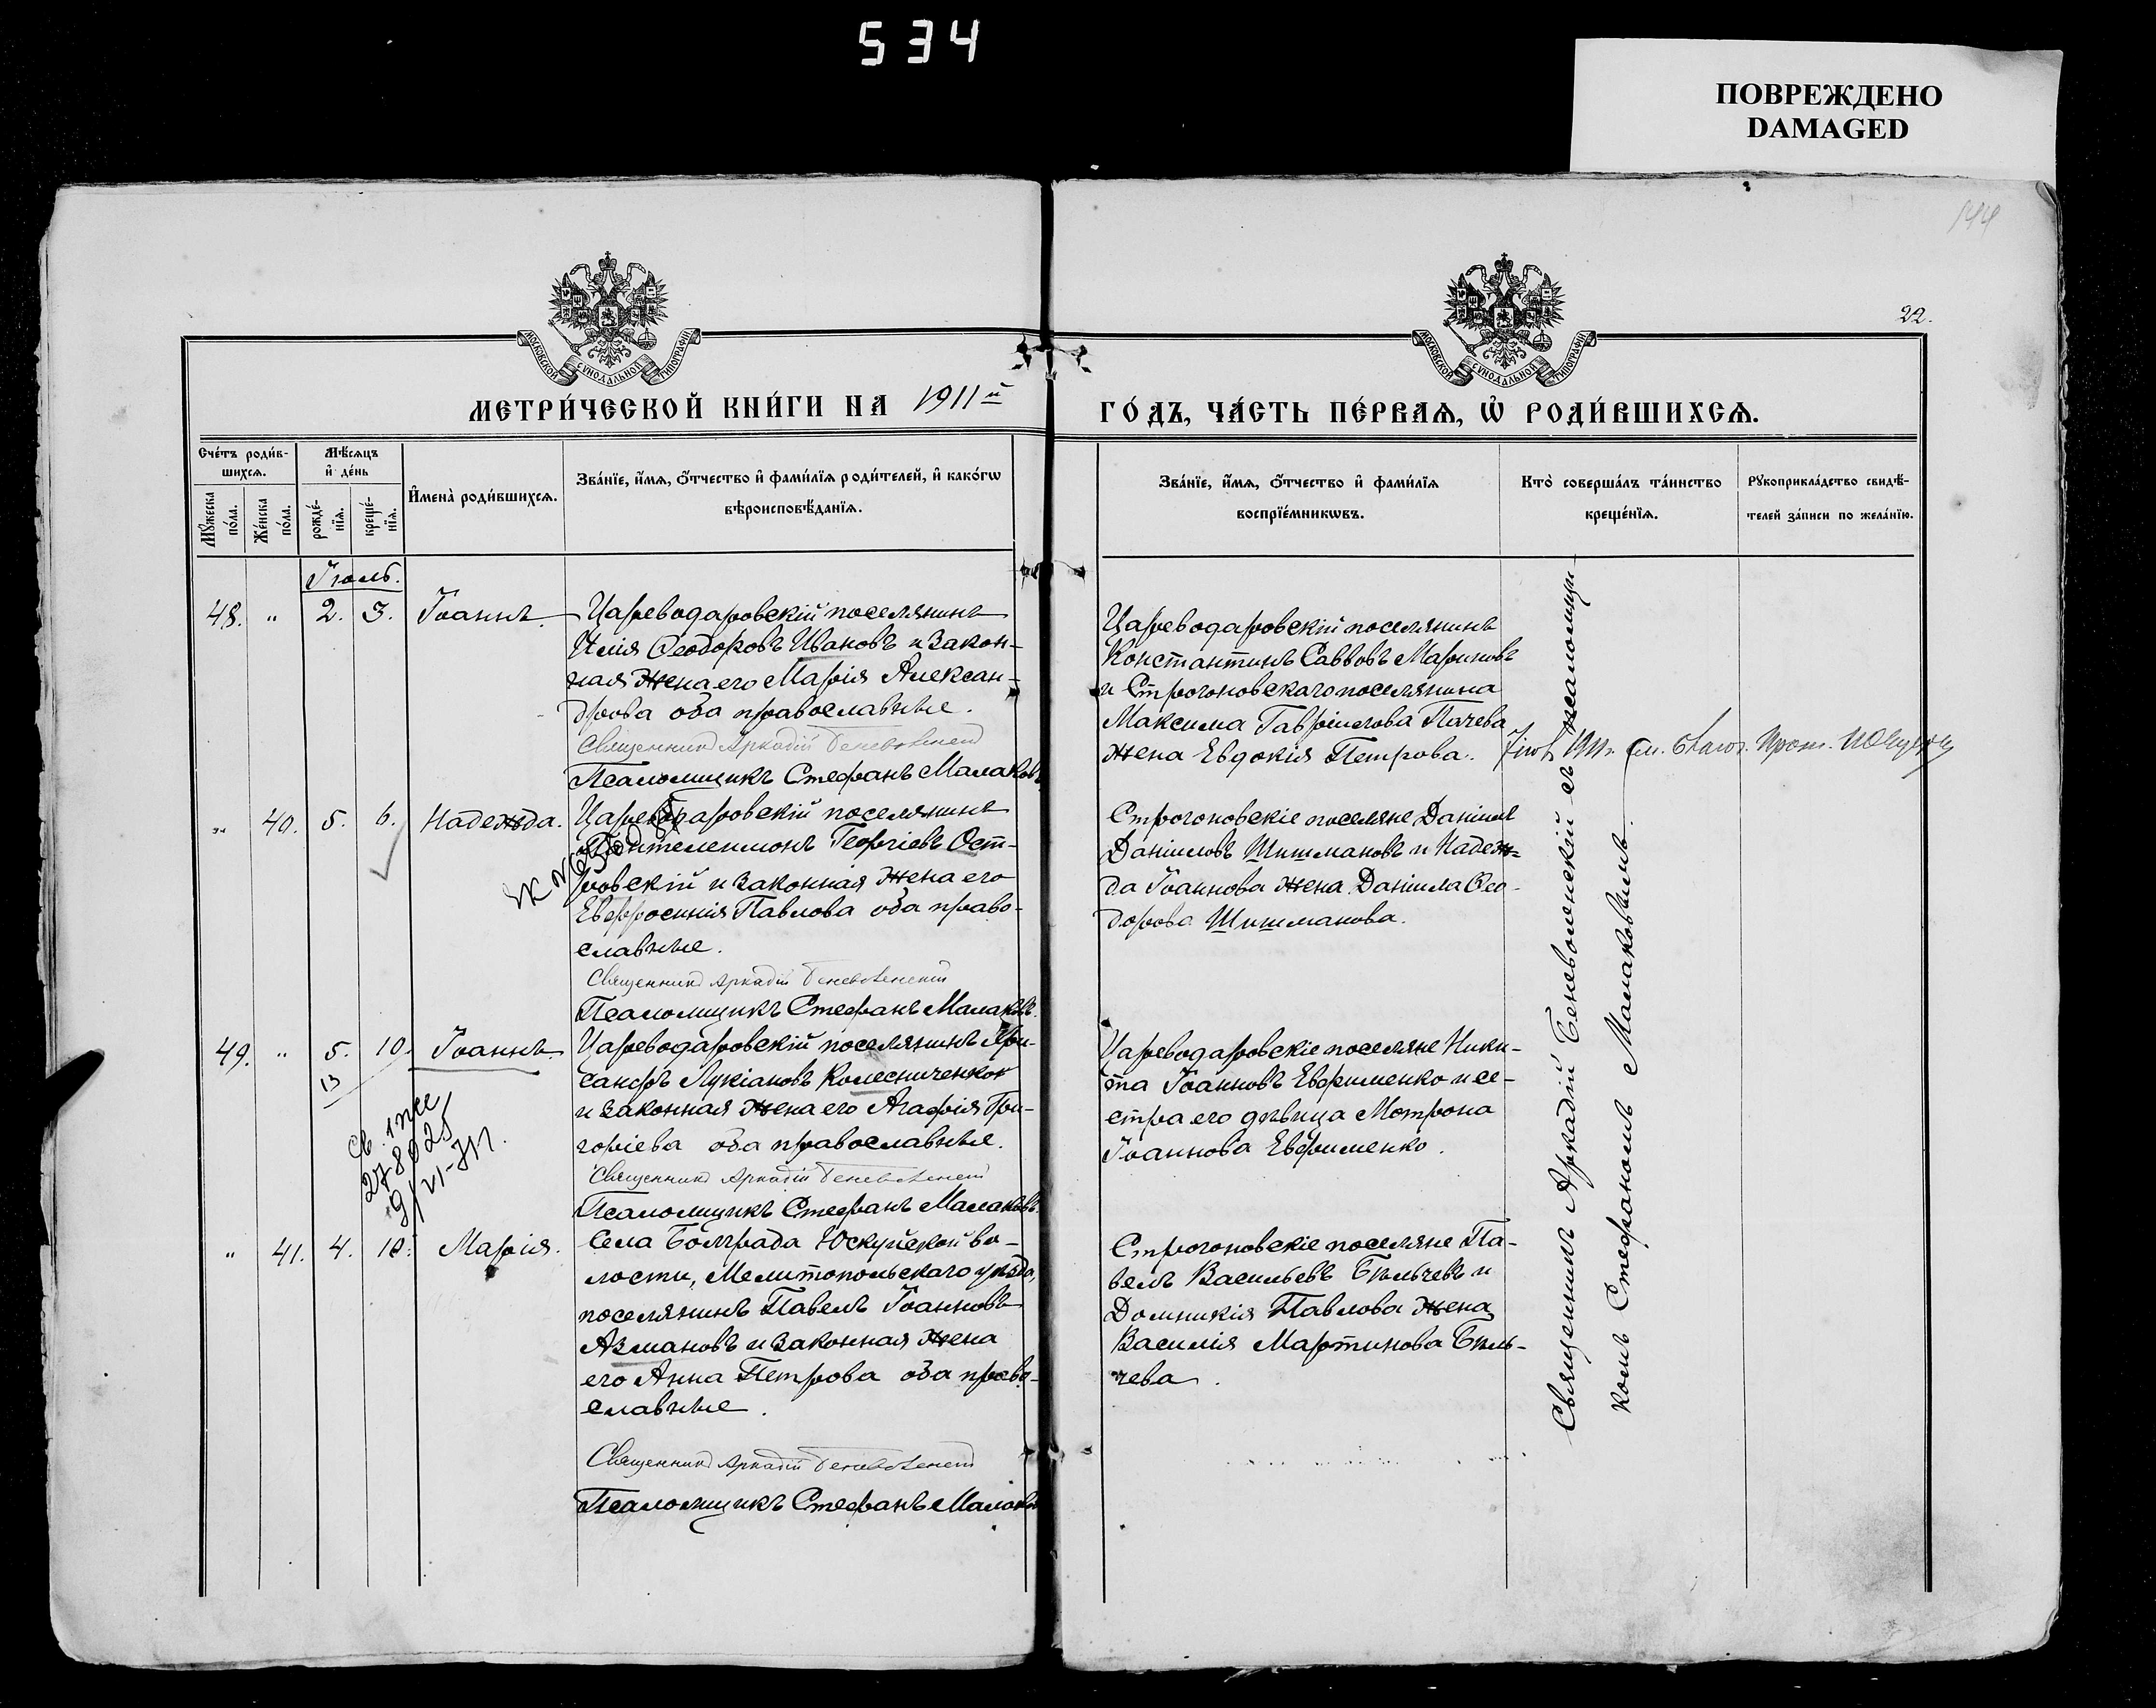 534
ПОВРЕЖДЕНО
DAMAGED
144
22.
МОСКОВСКОЙ СѴНОДАЛЬНОЙ ТИПОГРАФІИ
МОСКОВСКОЙ СѴНОДАЛЬНОЙ ТИПОГРАФІИ
МЕТРИ́ЧЕСКОЙ КНИ́ГИ НА 1911й
ГО́ДЪ, ЧА́СТЬ ПЕ́РВАѦ, Ѡ҆ РОДИ́ВШИХСѦ.
Сче́тъ роди́в-
шихсѧ.
Мꙋ́жеска по́ла.
Же́нска по́ла.
Мѣ́сѧцъ
и҆ де́нь
рожде́-нїѧ.
креще́-нїѧ.
И҆мена̀ роди́вшихсѧ.
Зва́нїе, и҆́мѧ, ѻ҆́тчество и҆ фами́лїѧ роди́телей, и҆ како́гѡ
вѣроисповѣ́данїѧ.
Зва́нїе, и҆́мѧ, ѻ҆́тчество и҆ фами́лїѧ
воспрїе́мникѡвъ.
Кто̀ соверша́лъ та́инство
креще́нїѧ.
Рꙋкоприкла́дство свидѣ́-
телей за́писи по жела́нїю.
Іюль.
48. " 2. 3. Іоаннъ.
Цареводаровскій поселянинъ
Илія Ѳеодоровъ Ивановъ и закон-
ная жена его Марія Алексан-
дрова оба православные.
Священникъ Аркадій Беневоленскій
Псаломщикъ Стефанъ Малаковъ
Цареводаровскій поселянинъ
Константинъ Саввовъ Мариновъ
и Строгоновскаго поселянина
Максима Гавріилова Пачева
жена Евдокія Петрова.
" 40. 5. 6. Надежда.
Цареводаровскій поселянинъ
Пантелеимонъ Георгіевъ Ост-
ровскій и законная жена его
Евфросинія Павлова оба право-
славные.
Священникъ Аркадій Беневоленскій
Псаломщикъ Стефанъ Малаковъ.
Строгоновскіе поселяне Даніилъ
Даніиловъ Шишмановъ и Надеж-
да Іоаннова жена Даніила Ѳео-
дорова Шишманова.
49. " 5. 10. Іоаннъ
13
Цареводаровскій поселянинъ Хри-
санфъ Лукіановъ Колесниченко
и законная жена его Агафія Гри-
горіева оба православные.
Священникъ Аркадій Беневоленскій
Псаломщикъ Стефанъ Малаковъ.
Цареводаровскіе поселяне Ники-
та Іоанновъ Евфименко и се-
стра его дѣвица Мотрона
Іоаннова Евфименко.
" 41. 4. 10. Марія.
Села Болграда Юскуйской во-
лости, Мелитопольскаго уѣзда,
поселянинъ Павелъ Іоанновъ
Азмановъ и законная жена
его Анна Петрова оба право-
славные.
Священникъ Аркадій Беневоленскій
Псаломщикъ Стефанъ Малаковъ
Строгоновскіе поселяне Па-
велъ Васильевъ Бѣльчевъ и
Домникія Павлова жена
Василія Мартинова Бѣль-
чева.
Священникъ Аркадій Беневоленскій съ псаломщи-
комъ Стефаномъ Малаковымъ.